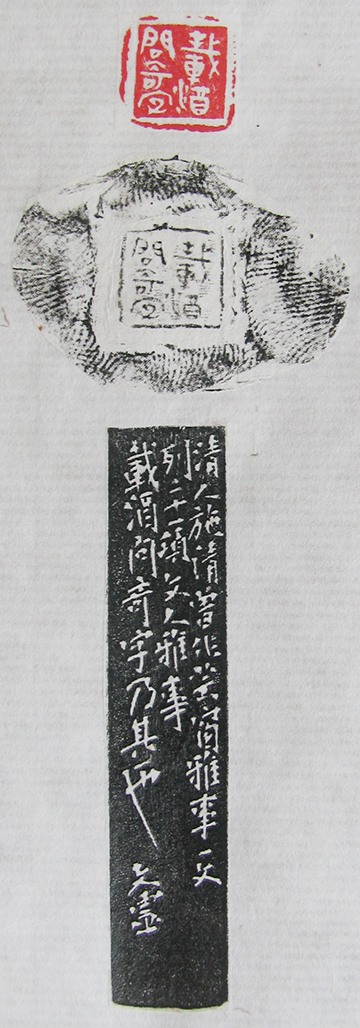 載酒
問奇字
載酒
問奇字
清人施清曾作芸窗雅事一文
列二十一項文人雅事
載酒問奇字乃其一也 文